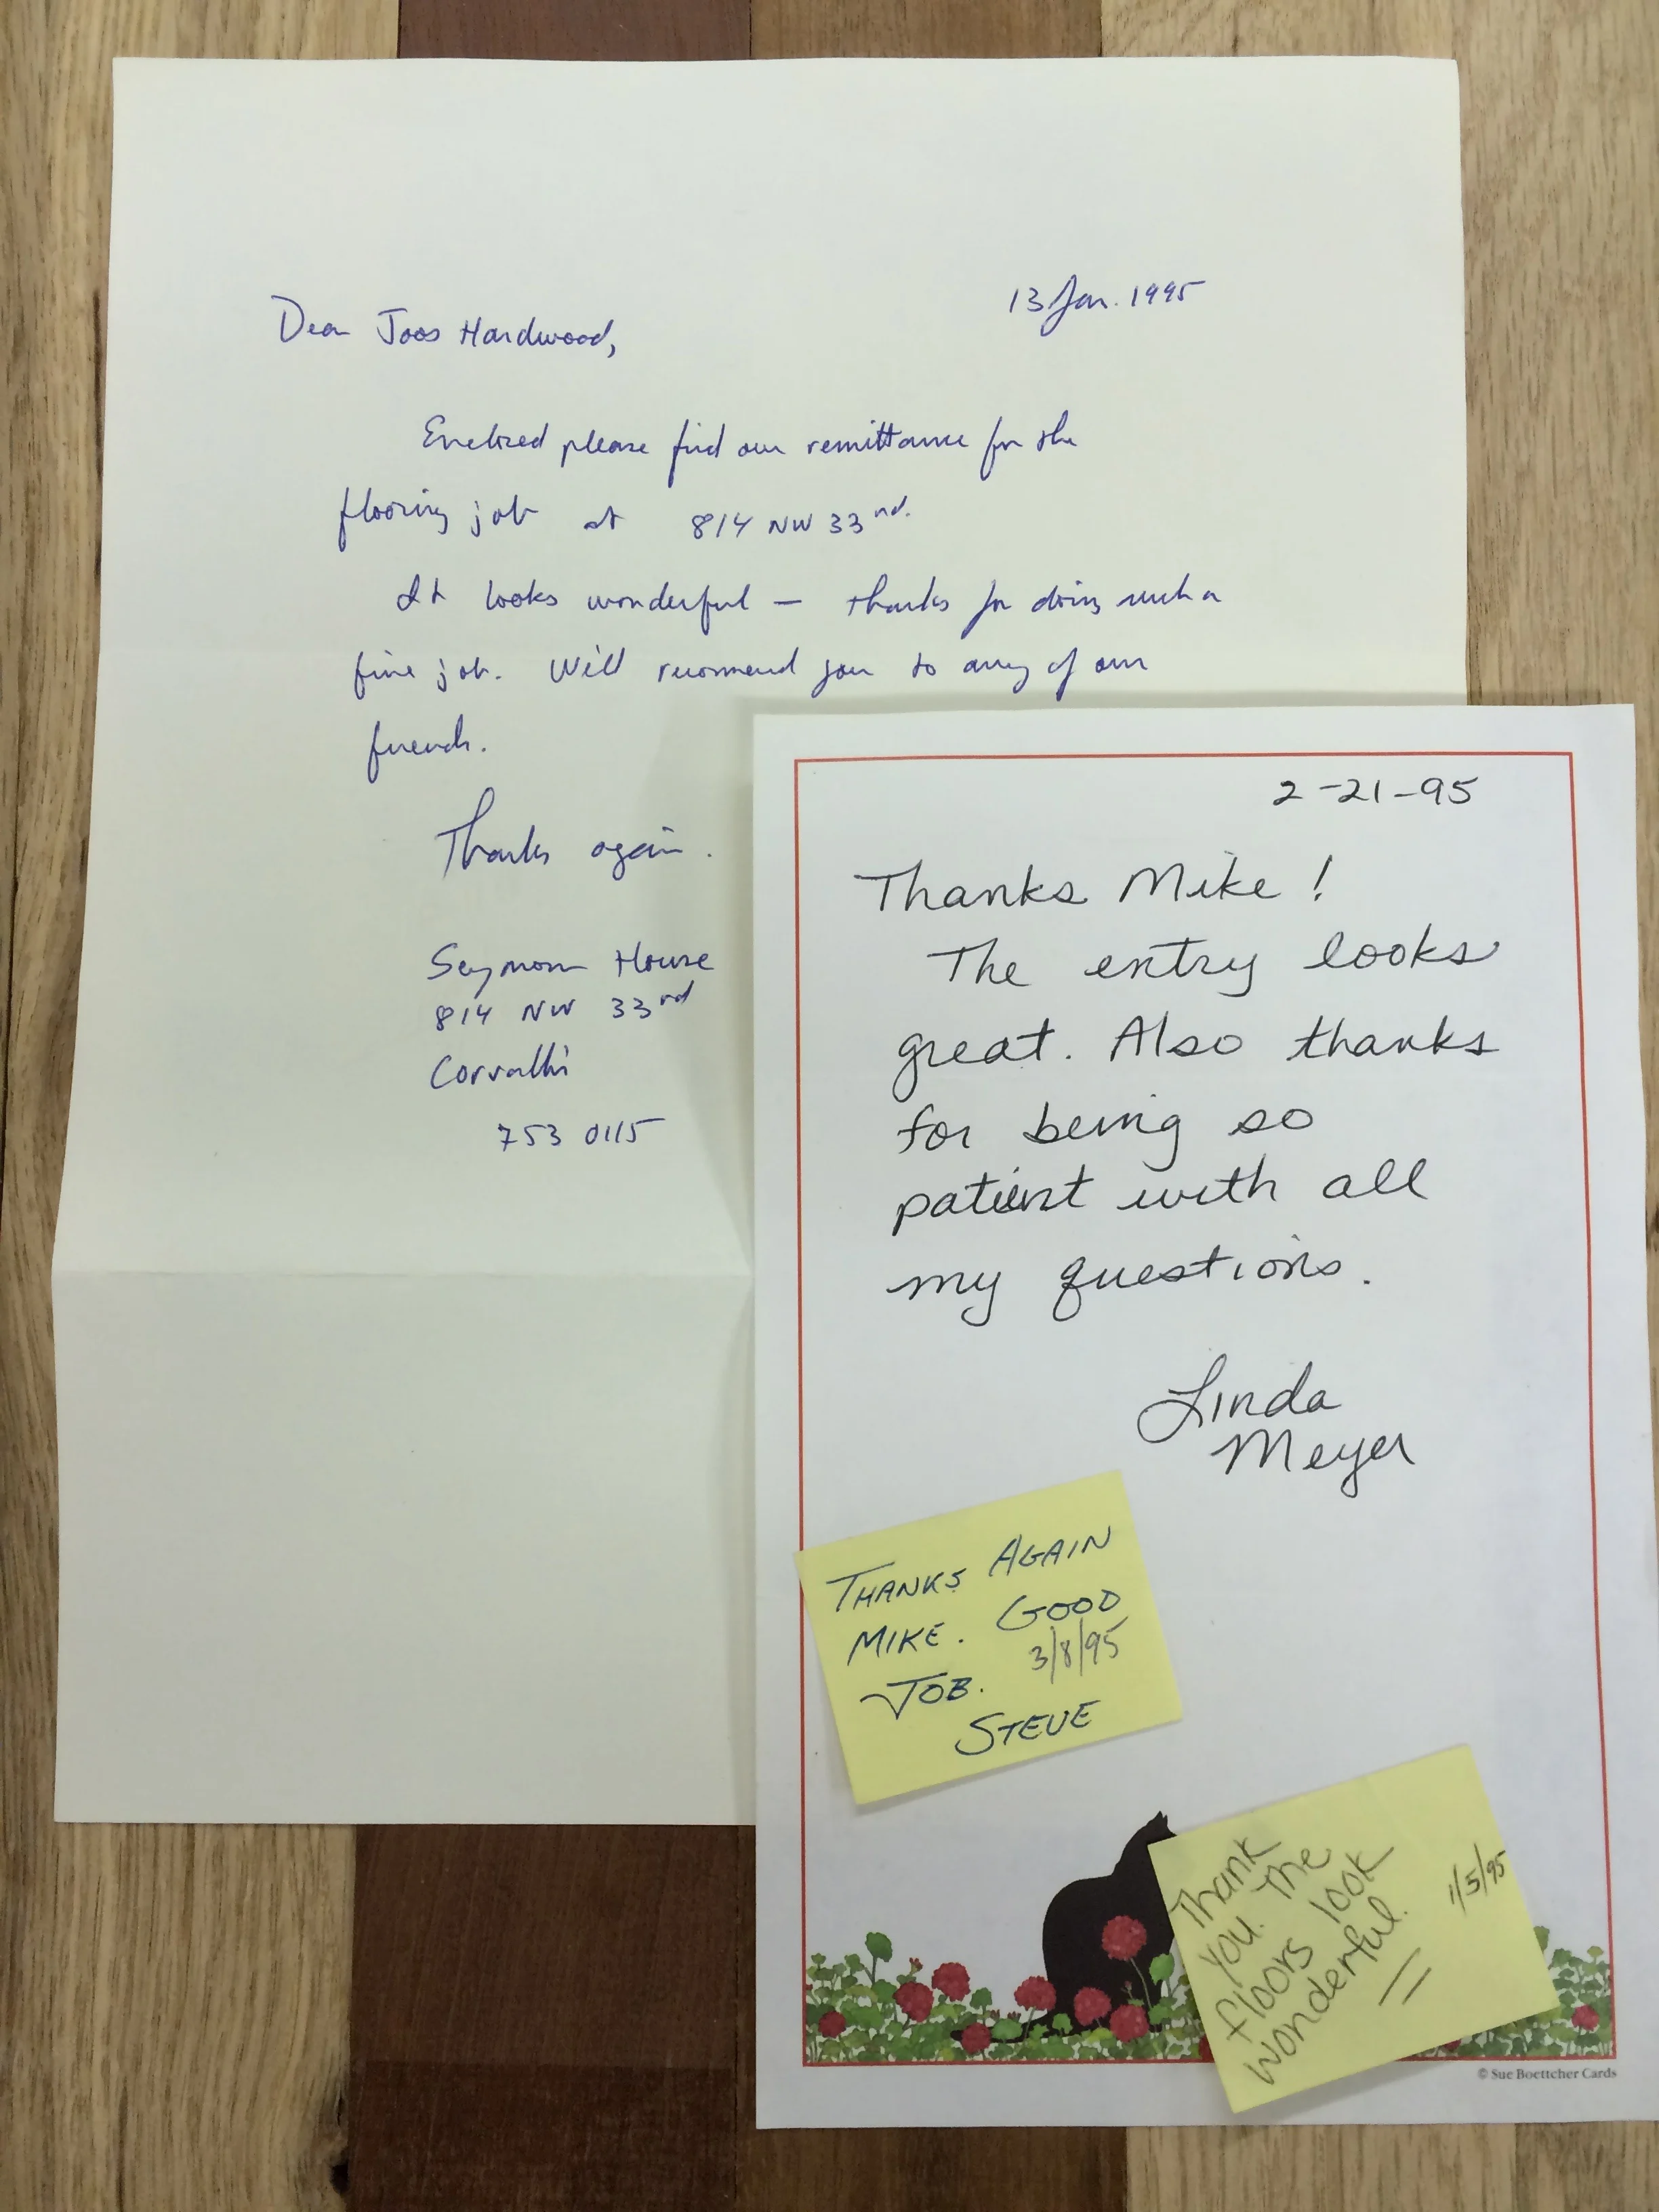 13 Jan. 1995
Dear Joos Hardwood,
Enclosed please find our remittance for the
flooring job at 814 NW 33rd.
It looks wonderful — thanks for doing such a
fine job. We'll recommend you to any of our
friends.
Thanks again.
Seymour House
814 NW 33rd
Corvallis
753 0115
2-21-95
Thanks Mike!
The entry looks
great. Also thanks
for being so
patient with all
my questions.
Linda
Meyer
THANKS AGAIN
MIKE. GOOD
3/8/95
JOB.
STEVE
Thank
you. The
floors look
wonderful.
1/5/95
© Sue Boettcher Cards